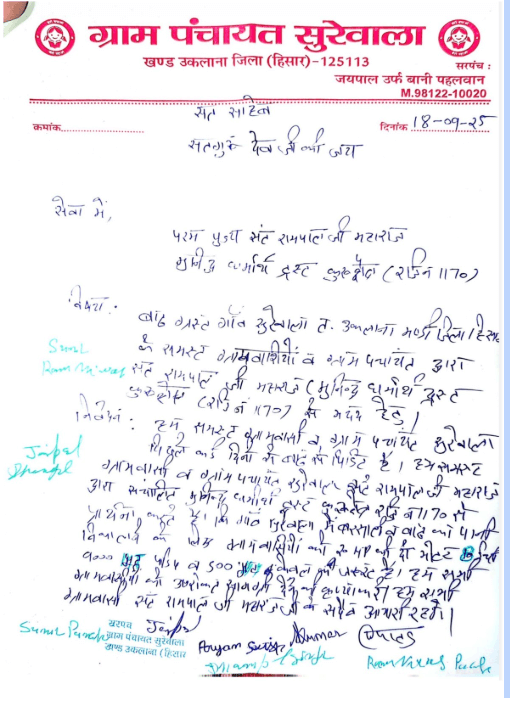 ग्राम पंचायत सुरेवाला
खण्ड उकलाना जिला (हिसार)-125113
सरपंच :
जयपाल उर्फ बानी पहलवान
M.98122-10020
क्रमांक..................
दिनांक 18-09-25
सत साहेब
सतगुरु देव जी की जय
सेवा में,
परम पुज्य संत रामपाल जी महाराज
मुनिन्द्र धर्मार्थ ट्रस्ट कुरुक्षेत्र (रजि नं 1170)
विषय :
बाढ ग्रस्त गाँव सुरेवाला त. उकलाना मण्डी जिला हिसार
के समस्त ग्रामवासियों व ग्राम पंचायत द्वारा
Sunil
Ram Niwas
संत रामपाल जी महाराज (मुनिन्द्र धर्मार्थ ट्रस्ट
कुरुक्षेत्र (रजि नं 1170) से मदद हेतु।
निवेदन : हम समस्त ग्रामवासी व ग्राम पंचायत सुरेवाला
पिछले कई दिनों से बाढ से पिडित है। हम समस्त
Jaipal
ग्रामवासी व ग्राम पंचायत सुरेवाला संत रामपाल जी महाराज
द्वारा संचालित मुनिन्द्र धर्मार्थ ट्रस्ट कुरुक्षेत्र रजि नं 1170 से
प्रार्थना करते है। कि गाँव सुरेवाला में बरसाती व बाढ का पानी
निकालने के लिए ग्रामवासियों को मोटर
पाईप व 500 की जरूरत है। हम सभी
ग्रामवासियों को उपरोक्त सामग्री देने की कृपा करें। हम सभी
ग्रामवासी संत रामपाल जी महाराज जी के सदैव आभारी रहेंगे।
सरपंच
ग्राम पंचायत सुरेवाला
खण्ड उकलाना (हिसार
Jaipal
Sunil Panch
Singh
Ram Niwas Panch